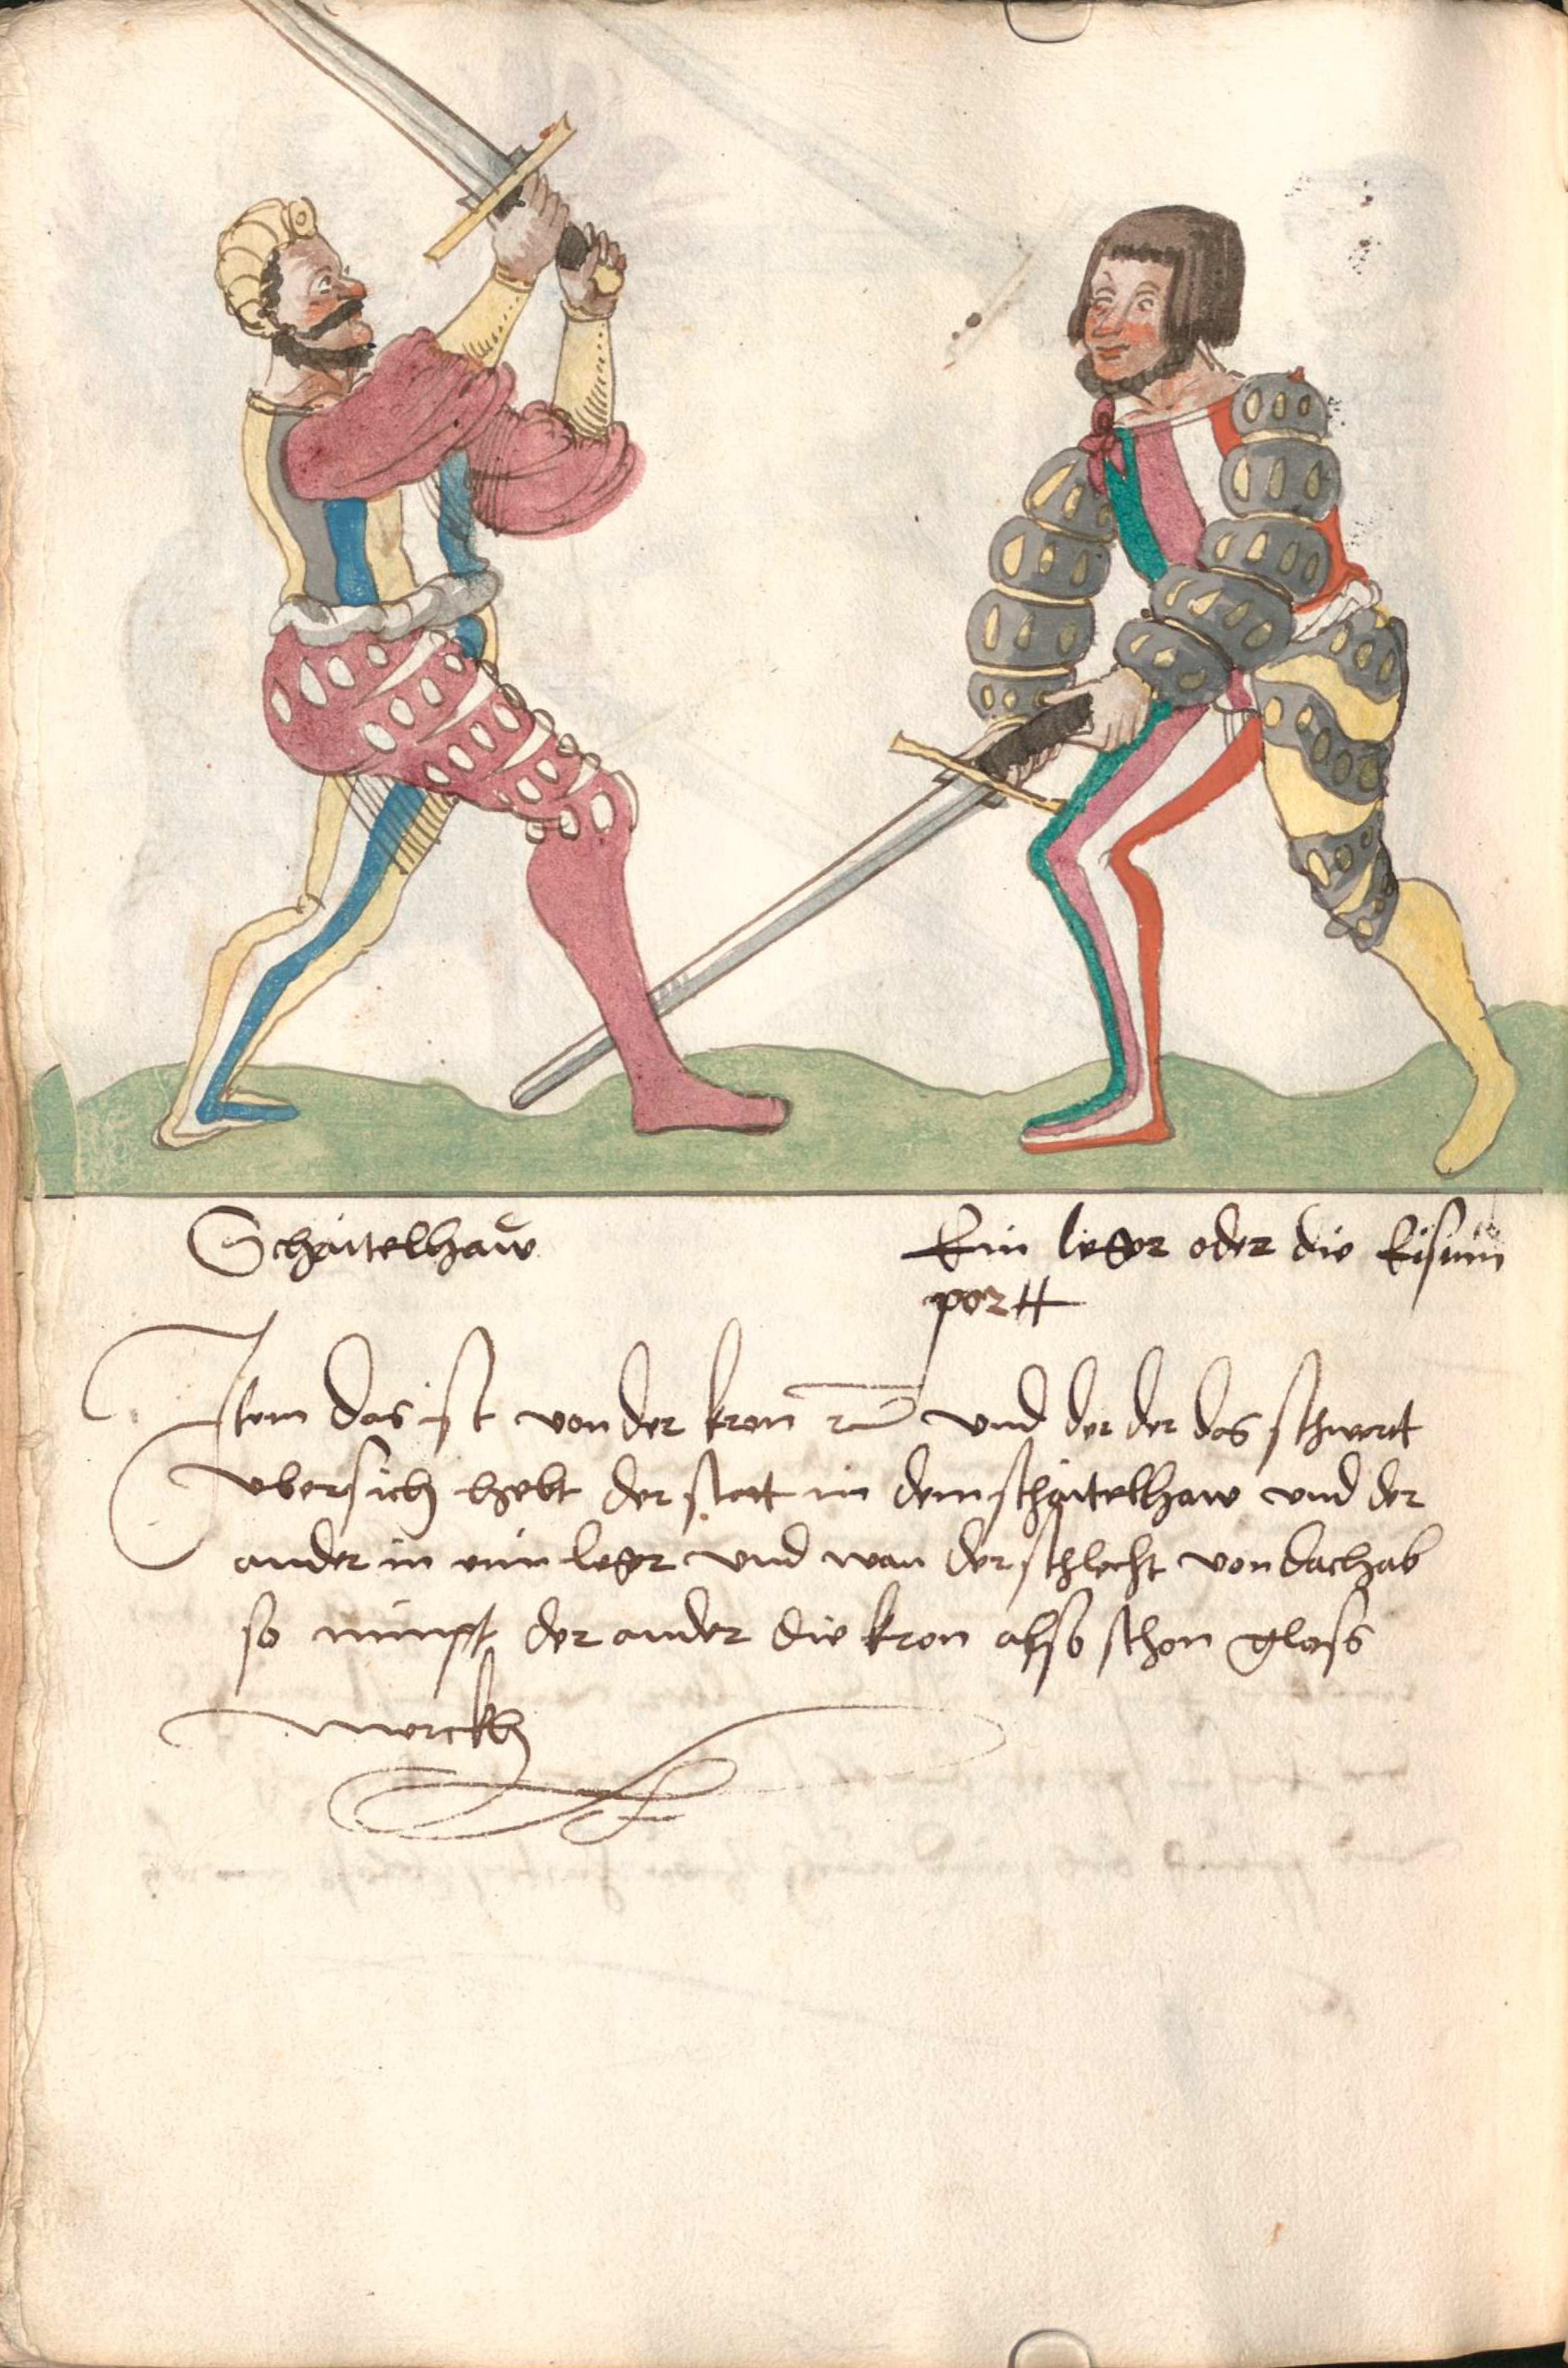 Schaitelhaw
Ein leger oder die Eisnin
portt
Item das ist von der kron und der der das schwertt
ubersich hebt der statt in dem schaitelhaw und der
ander in ein leger und wan der schlecht von dach ab
so nimpt der ander die kron also schon gloss
merckh